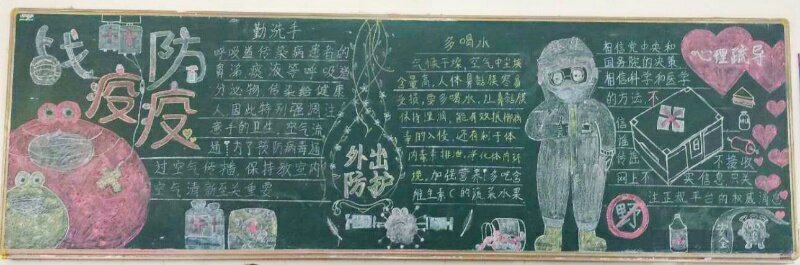 战疫
防疫
勤洗手
呼吸道传染病患者的
鼻涕、痰液等呼吸道
分泌物 传染给健康
人,因此特别强调注
意手的卫生。空气流
通!为了预防病毒通
过空气传播,保持教室内
空气清新至关重要
外出
防护
多喝水
气候干燥,空气中尘埃
含量高,人体鼻黏膜容易
受损,要多喝水,让鼻黏膜
保持湿润,能有效抵御病
毒的入侵,还有利于体
内毒素排泄,净化体内环
境。加强营养!多吃含
维生素C的蔬菜水果
相信党中央和
国务院的决策
相信科学和医学
的方法。不
信谣
传谣
不接收
网上不 实信息,只关
注正规平台的权威消息
心理疏导
野
安全